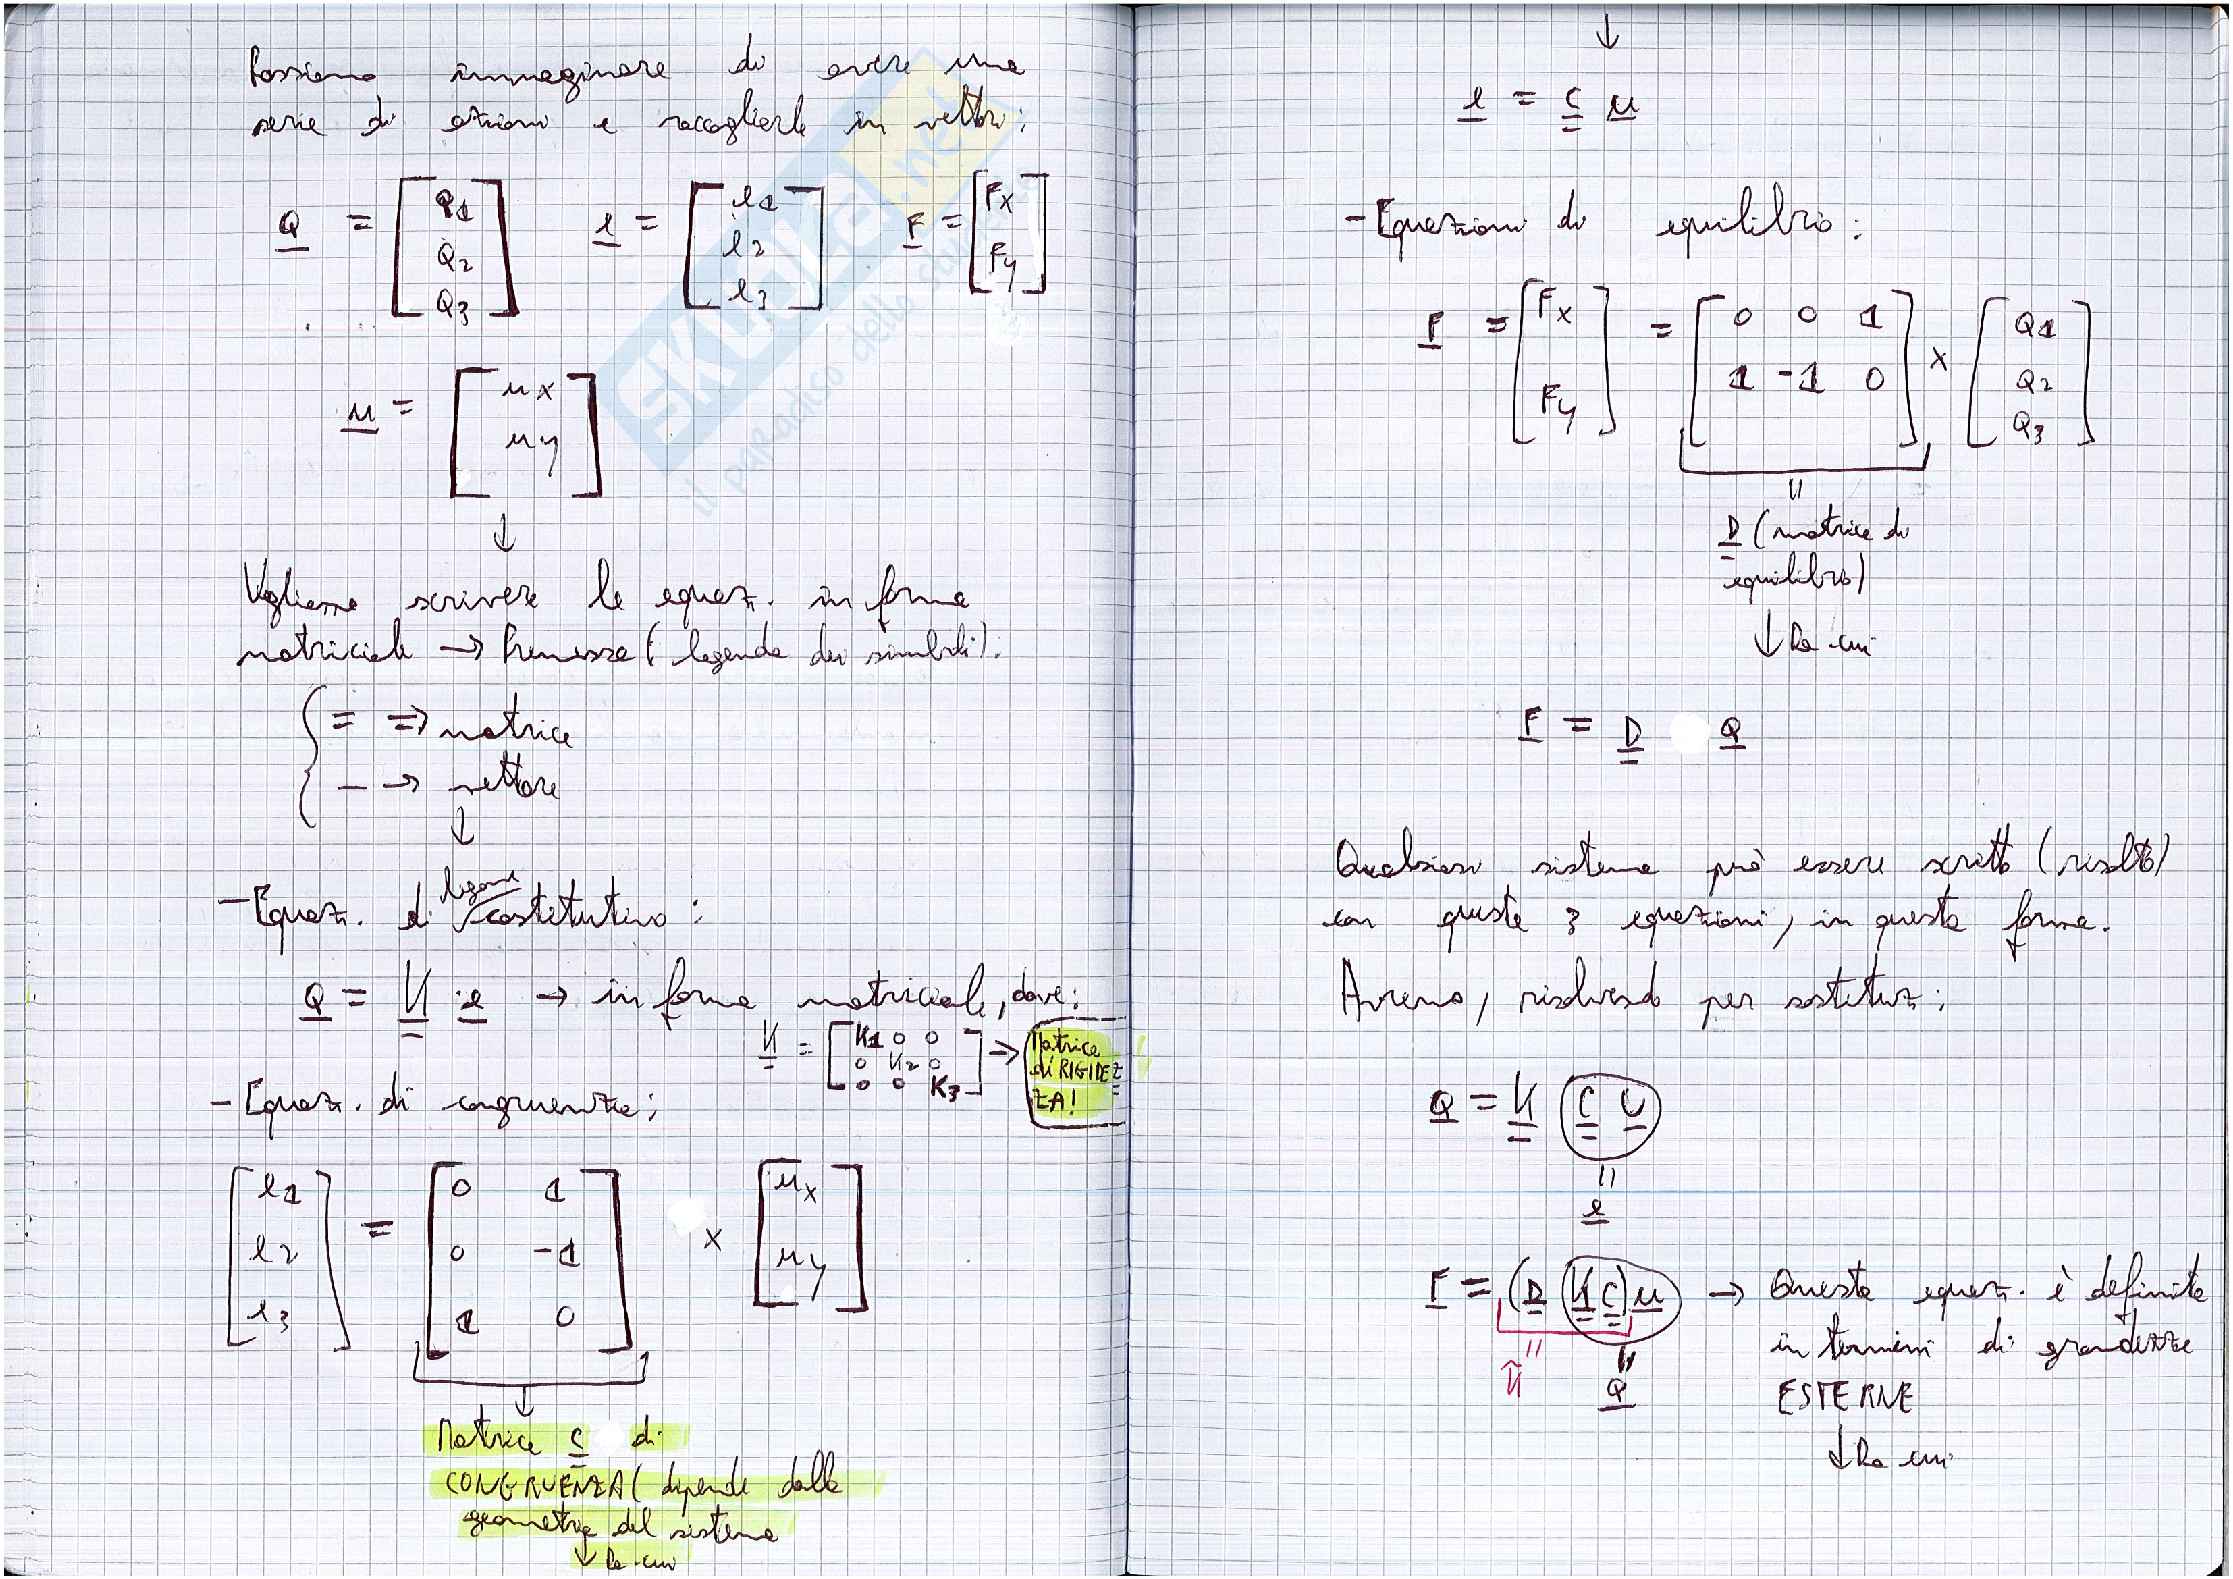 Possiamo immaginare di avere una
serie di azioni e raccoglierle in vettori:
Q = [Q1 Q2 Q3] e = [e1 e2 e3] F = [Fx Fy]
u = [ux uy]
↓
Vogliamo scrivere le equaz. in forma
matriciale → Premessa (legenda dei simboli):
= ⇒ matrice
— → vettore
↓
- Equaz. di legame costitutivo:
Q = K · e → in forma matriciale, dove:
K = [K1 0 0
0 K2 0
0 0 K3] → Matrice
di RIGIDEZ
ZA!
- Equaz. di congruenza:
[e1 e2 e3] = [0 1
0 -1
1 0] × [ux uy]
↓
Matrice C di
CONGRUENZA (dipende dalla
geometria del sistema
↓ Da cui
↓
e = C u
- Equazioni di equilibrio:
F = [Fx Fy] = [0 0 1
1 -1 0] × [Q1 Q2 Q3]
=
D (matrice di
equilibrio)
↓ Da cui
F = D Q
Qualsiasi sistema può essere scritto (risolto)
con queste 3 equazioni, in questa forma.
Avremo, risolvendo per sostituz:
Q = K C U
=
e
F = (D K C) u → Questa equaz. è definita
in termini di grandezze
= K̃ = Q
ESTERNE
↓ Da cui
SKUOLA.net
il paradiso dello studente